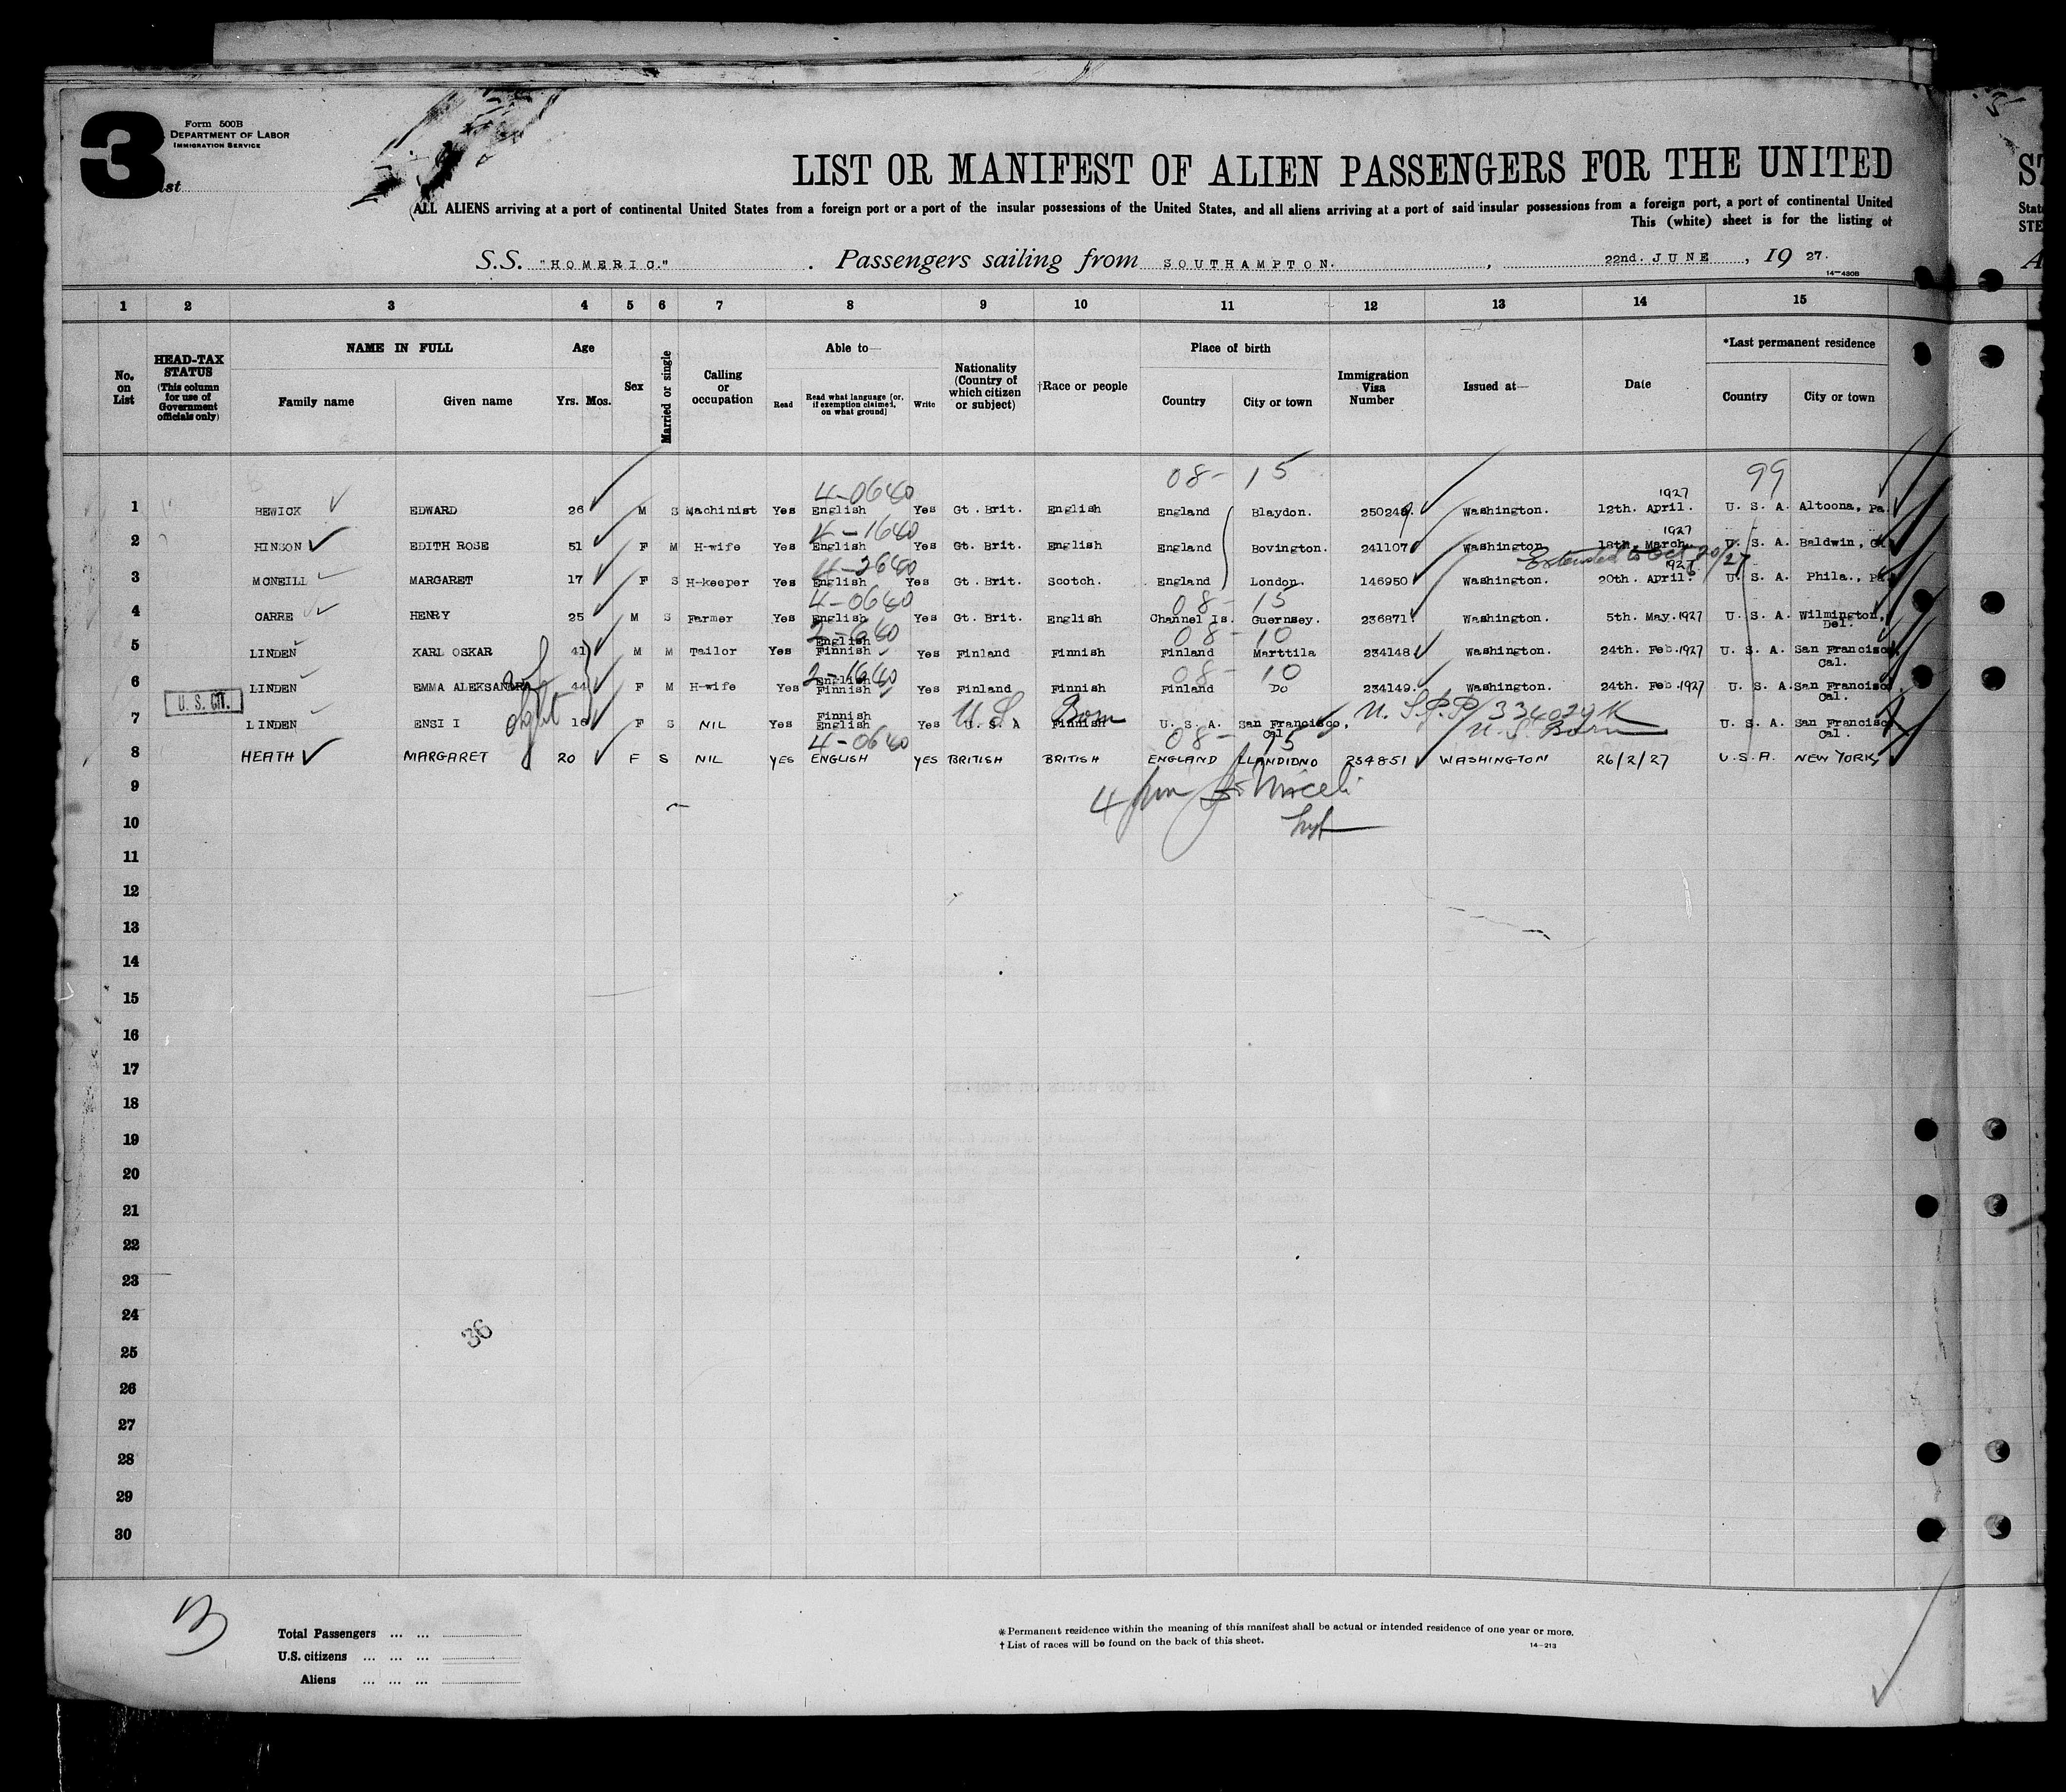 3
Form 500B
DEPARTMENT OF LABOR
IMMIGRATION SERVICE
LIST OR MANIFEST OF ALIEN PASSENGERS FOR THE UNITED
(ALL ALIENS arriving at a port of continental United States from a foreign port or a port of the insular possessions of the United States, and all aliens arriving at a port of said insular possessions from a foreign port, a port of continental United
This (white) sheet is for the listing of
S.S. "HOMERIC." Passengers sailing from SOUTHAMPTON. , 22nd. JUNE , 19 27.
14-430B
1 2 3 4 5 6 7 8 9 10 11 12 13 14 15
No. on List
HEAD-TAX STATUS (This column for use of Government officials only)
NAME IN FULL
Family name Given name
Age
Yrs. Mos.
Sex
Married or single
Calling or occupation
Able to—
Read Read what language [or, if exemption claimed, on what ground] Write
Nationality (Country of which citizen or subject)
†Race or people
Place of birth
Country City or town
Immigration Visa Number
Issued at—
Date
*Last permanent residence
Country City or town
08- 15 99
4-0640 1927
1 BEWICK EDWARD 26 M S Machinist Yes English Yes Gt. Brit. English England Blaydon. 250248. Washington. 12th. April. U. S. A. Altoona, Pa.
4-1640 1927
2 HINSON EDITH ROSE 51 F M H-wife Yes English Yes Gt. Brit. English England Bovington. 241107 Washington 18th. March. U. S. A. Baldwin,
4-2640 Extended to Oct 20/27
3 MCNEILL MARGARET 17 F S H-keeper Yes English Yes Gt. Brit. Scotch. England London. 146950 Washington. 20th. April. U. S. A. Phila., Pa.
4-0640 08- 15
4 CARRE HENRY 25 M S Farmer Yes English Yes Gt. Brit. English Channel Is. Guernsey. 236871 Washington. 5th. May. 1927 U. S. A. Wilmington, Del.
2-640 08- 10
5 LINDEN KARL OSKAR 41 M M Tailor Yes English Finnish Yes Finland Finnish Finland Marttila 234148 Washington. 24th. Feb. 1927 U. S. A. San Francisco, Cal.
2-1640 08- 10
6 LINDEN EMMA ALEKSANDRA 44 F M H-wife Yes English Finnish Yes Finland Finnish Finland Do 234149. Washington. 24th. Feb. 1927 U. S. A. San Francisco, Cal.
U. S. CIT.
U.S. Born U.S.P.P. 334029 U.S. Born
7 LINDEN ENSI I 16 F S NIL Yes Finnish English Yes U. S. A Finnish U. S. A. San Francisco, Cal. U. S. A. San Francisco, Cal.
4-0640 08- 15
8 HEATH MARGARET 20 F S NIL YES ENGLISH YES BRITISH BRITISH ENGLAND LLANDIDNO 234851 WASHINGTON 26/2/27 U.S.A. NEW YORK
9
10
11
12
13
14
15
16
17
18
19
20
21
22
23
24
25
26
27
28
29
30
36
Total Passengers ... ...
U.S. citizens ... ... ...
Aliens ... ... ...
* Permanent residence within the meaning of this manifest shall be actual or intended residence of one year or more.
† List of races will be found on the back of this sheet.
14-213